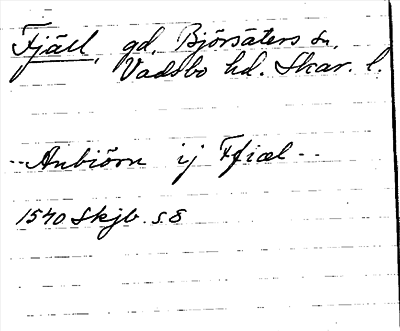 Fjäll, gd, Björsäters sn,
Vadsbo hd. Skar. l.
-- Anbiörn ij Ffiæl --
1540 Skjb. s 8